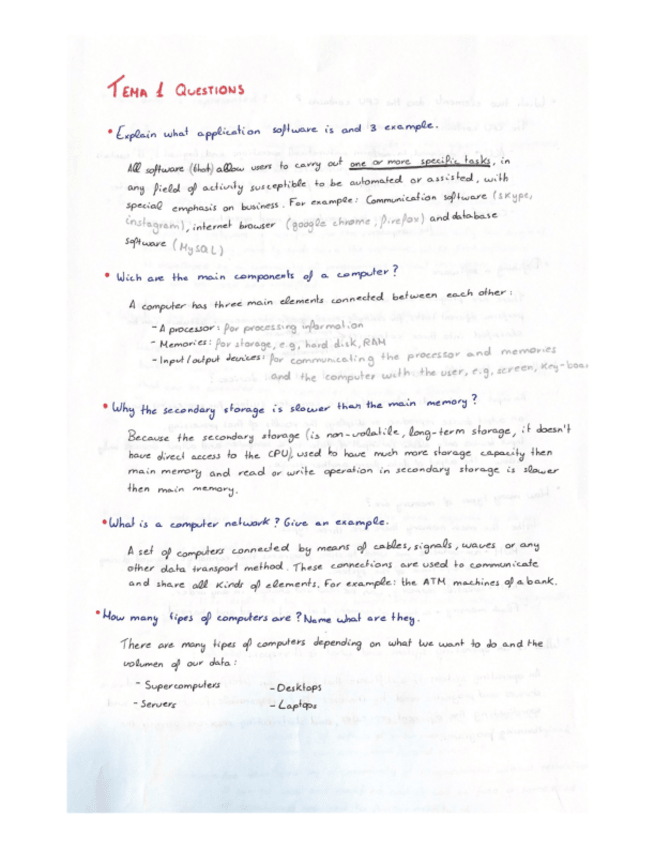 TEMA 1 QUESTIONS
• Explain what application software is and 3 example.
All software (that) allow users to carry out one or more specific tasks, in
any field of activity susceptible to be automated or assisted, with
special emphasis on business. For example: Communication software (skype,
instagram), internet browser (google chrome, firefox) and database
software (MySQL)
• Wich are the main components of a computer?
A computer has three main elements connected between each other:
- A processor: for processing information
- Memories: for storage, e.g, hard disk, RAM
- Input/output devices: for communicating the processor and memories
and the computer with the user, e.g, screen, key-boar
• Why the secondary storage is slower than the main memory?
Because the secondary storage (is non-volatile, long-term storage, it doesn't
have direct access to the CPU), used to have much more storage capacity then
main memory and read or write operation in secondary storage is slower
then main memory.
• What is a computer network? Give an example.
A set of computers connected by means of cables, signals, waves or any
other data transport method. These connections are used to communicate
and share all kinds of elements. For example: the ATM machines of a bank.
• How many tipes of computers are? Name what are they.
There are many tipes of computers depending on what we want to do and the
volumen of our data:
- Supercomputers - Desktops
- Servers - Laptops